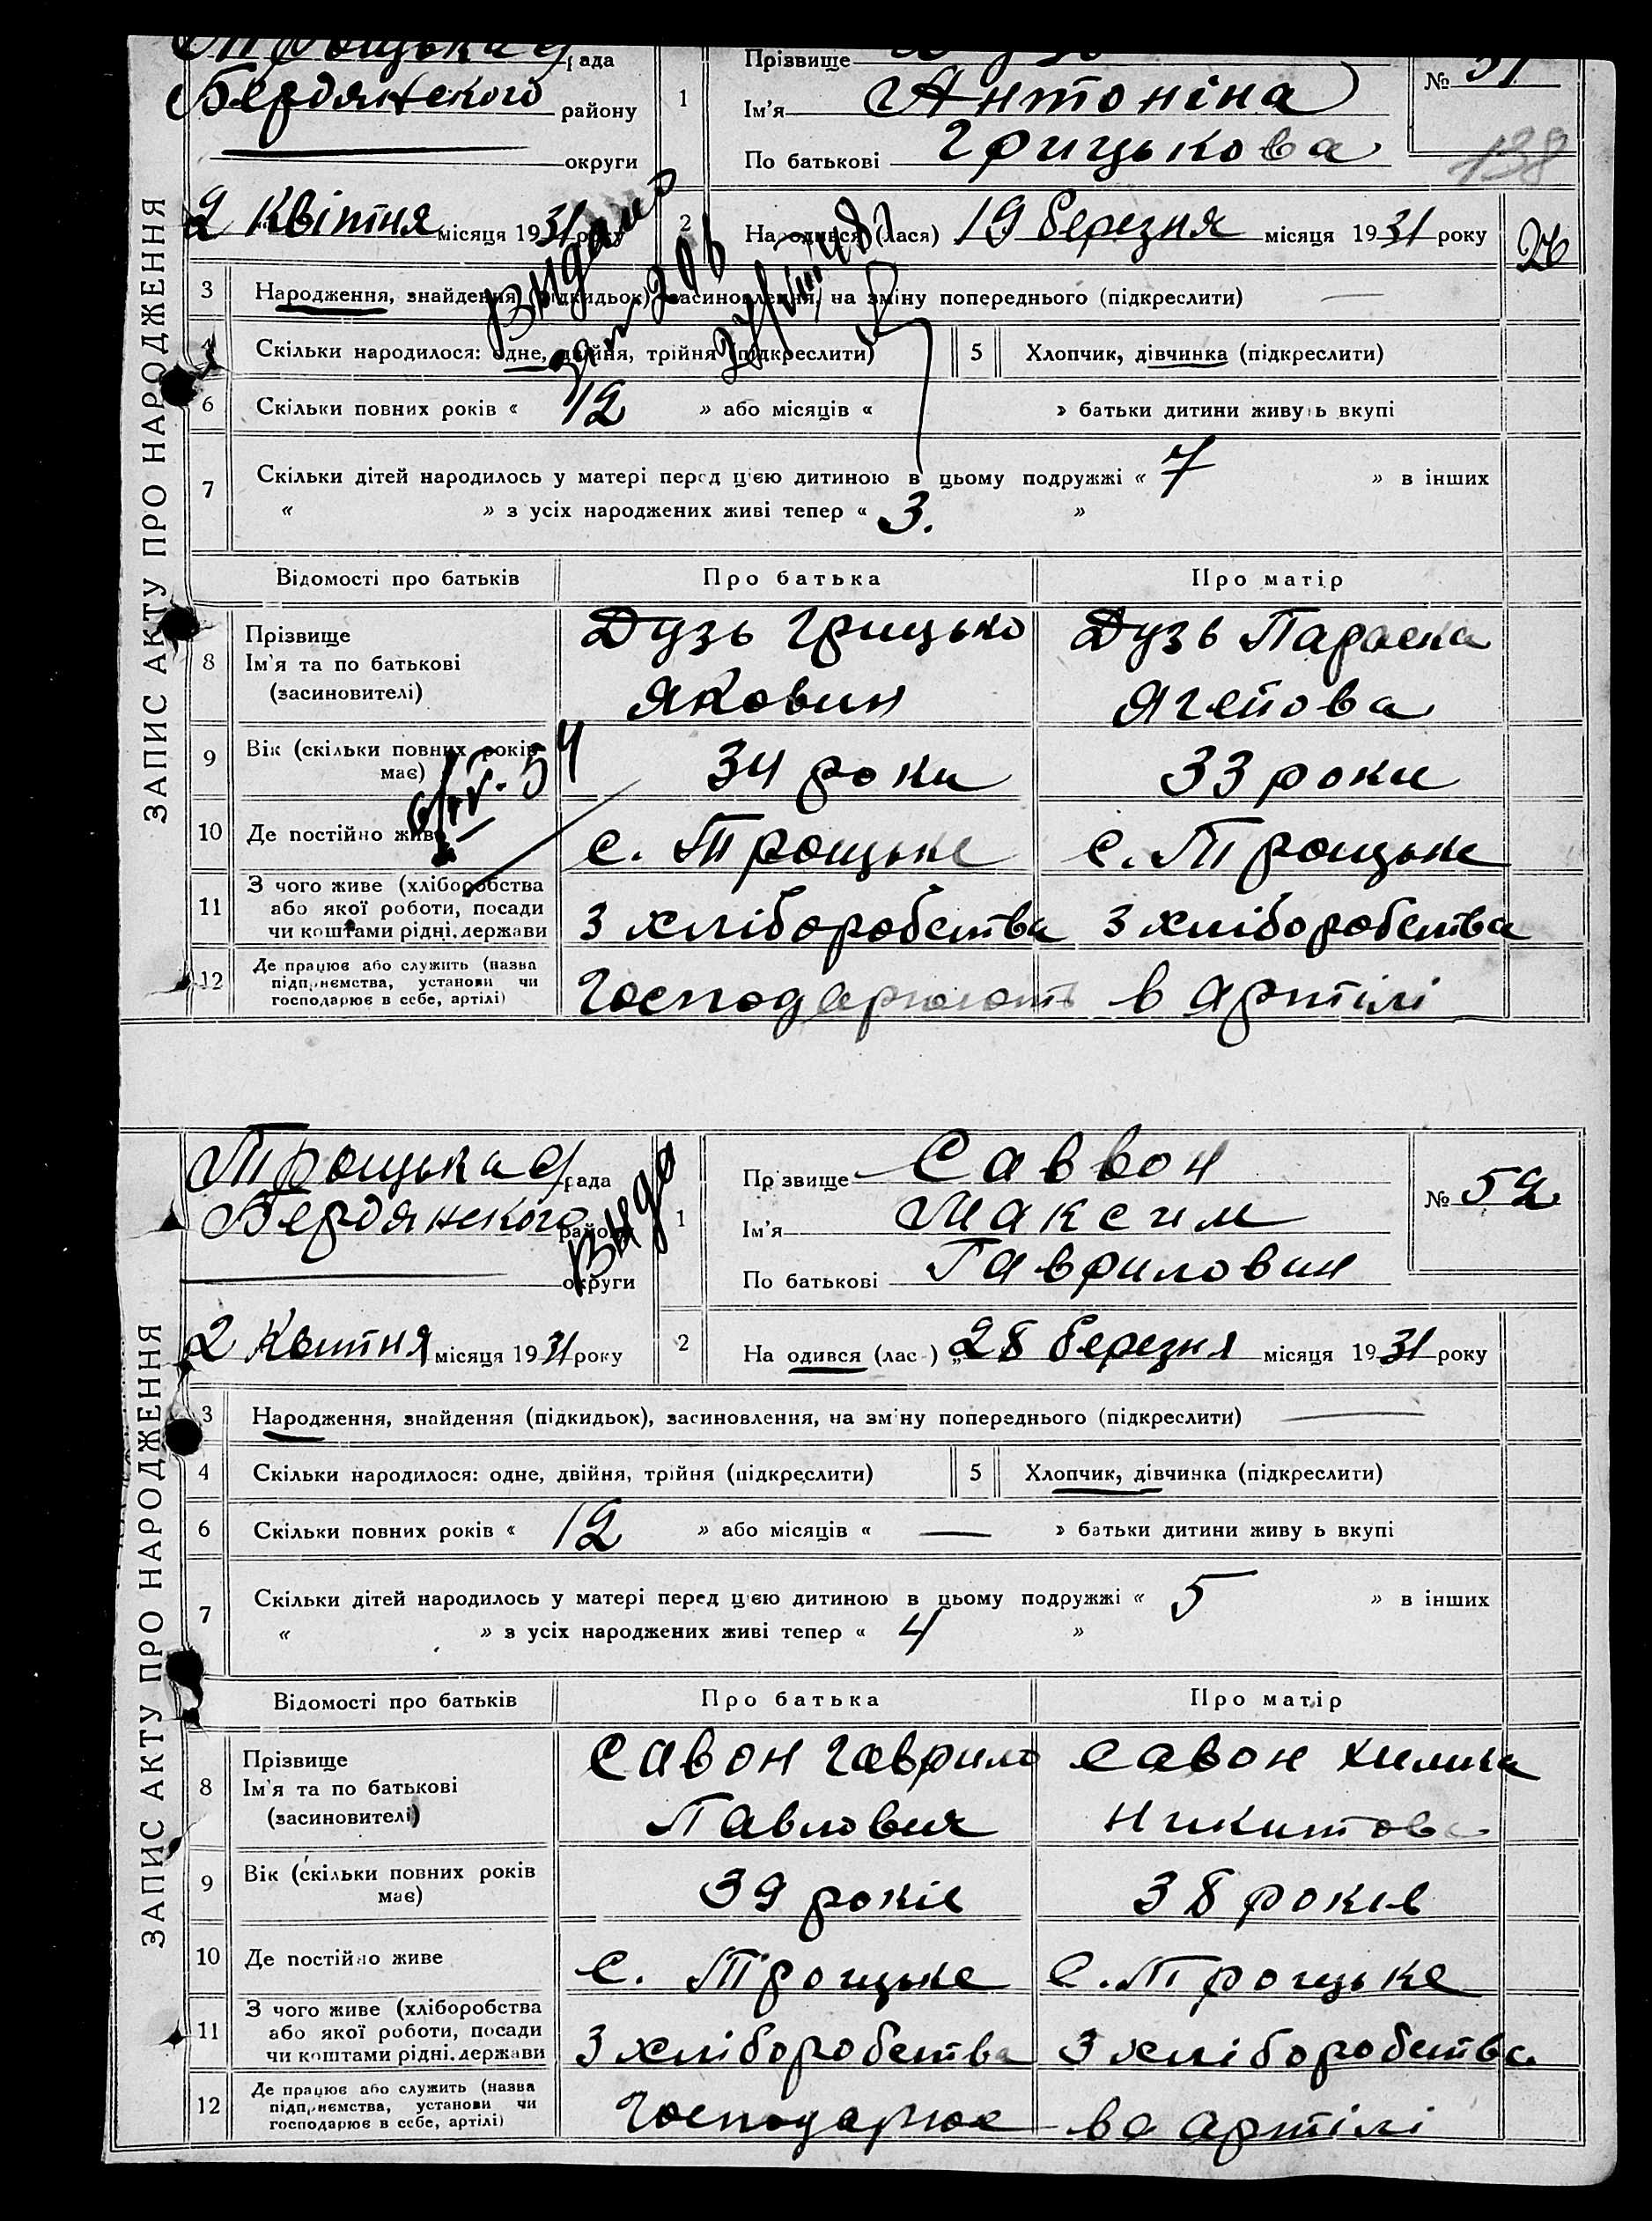 Троцька с/рада
Бердянського району
округи
Прізвище
1 Ім'я Антоніна
По батькові Грицькова
№ 51
138
2 Квітня місяця 1931 року
2 Народився (лася) 19 березня місяця 1931 року
26
Видано
3 Народження, знайдення (підкидьок), засиновлення, на зміну попереднього (підкреслити)
4 Скільки народилося: одне, двійня, трійня (підкреслити) 5 Хлопчик, дівчинка (підкреслити)
6 Скільки повних років « 12 » або місяців « » батьки дитини живуть вкупі
7 Скільки дітей народилось у матері перед цією дитиною в цьому подружжі « 7 » в інших
« » з усіх народжених живі тепер « 3. »
Відомості про батьків Про батька Про матір
8 Прізвище
Ім'я та по батькові
(засиновителі)
Дузь Грицько
Якович
Дузь Параска
9 Вік (скільки повних років
має)
34 роки 33 роки
10 Де постійно живе с. Троцьке с. Троцьке
11 З чого живе (хліборобства
або якої роботи, посади
чи коштами рідні, держави
З хліборобства З хліборобства
12 Де працює або служить (назва
підприємства, установи чи
господарює в себе, артілі)
Господарюють в артілі
ЗАПИС АКТУ ПРО НАРОДЖЕННЯ
Троцька с/рада
Бердянського району
округи
Видано
1 Прізвище Саввон
Ім'я Максим
По батькові Гаврилович
№ 52
2 Квітня місяця 1931 року
2 Народився (лася) „28 березня місяця 1931 року
3 Народження, знайдення (підкидьок), засиновлення, на зміну попереднього (підкреслити)
4 Скільки народилося: одне, двійня, трійня (підкреслити) 5 Хлопчик, дівчинка (підкреслити)
6 Скільки повних років « 12 » або місяців « — » батьки дитини живуть вкупі
7 Скільки дітей народилось у матері перед цією дитиною в цьому подружжі « 5 » в інших
« » з усіх народжених живі тепер « 4 »
Відомості про батьків Про батька Про матір
8 Прізвище
Ім'я та по батькові
(засиновителі)
Савон Гаврило
Павлович
Савон
Никитова
9 Вік (скільки повних років
має)
39 років 38 років
10 Де постійно живе с. Троцьке с. Троцьке
11 З чого живе (хліборобства
або якої роботи, посади
чи коштами рідні, держави
З хліборобства З хліборобства
12 Де працює або служить (назва
підприємства, установи чи
господарює в себе, артілі)
Господарює в артілі
ЗАПИС АКТУ ПРО НАРОДЖЕННЯ